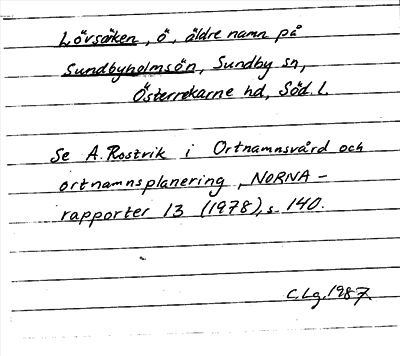 Lövsäken, ö, äldre namn på
Sundbyholmsön, Sundby sn,
Österrekarne hd, Söd. l.
Se A. Rostvik i Ortnamnsvård och
ortnamnsplanering, NORNA-
rapporter 13 (1978), s. 140.
C. Lg. 1987